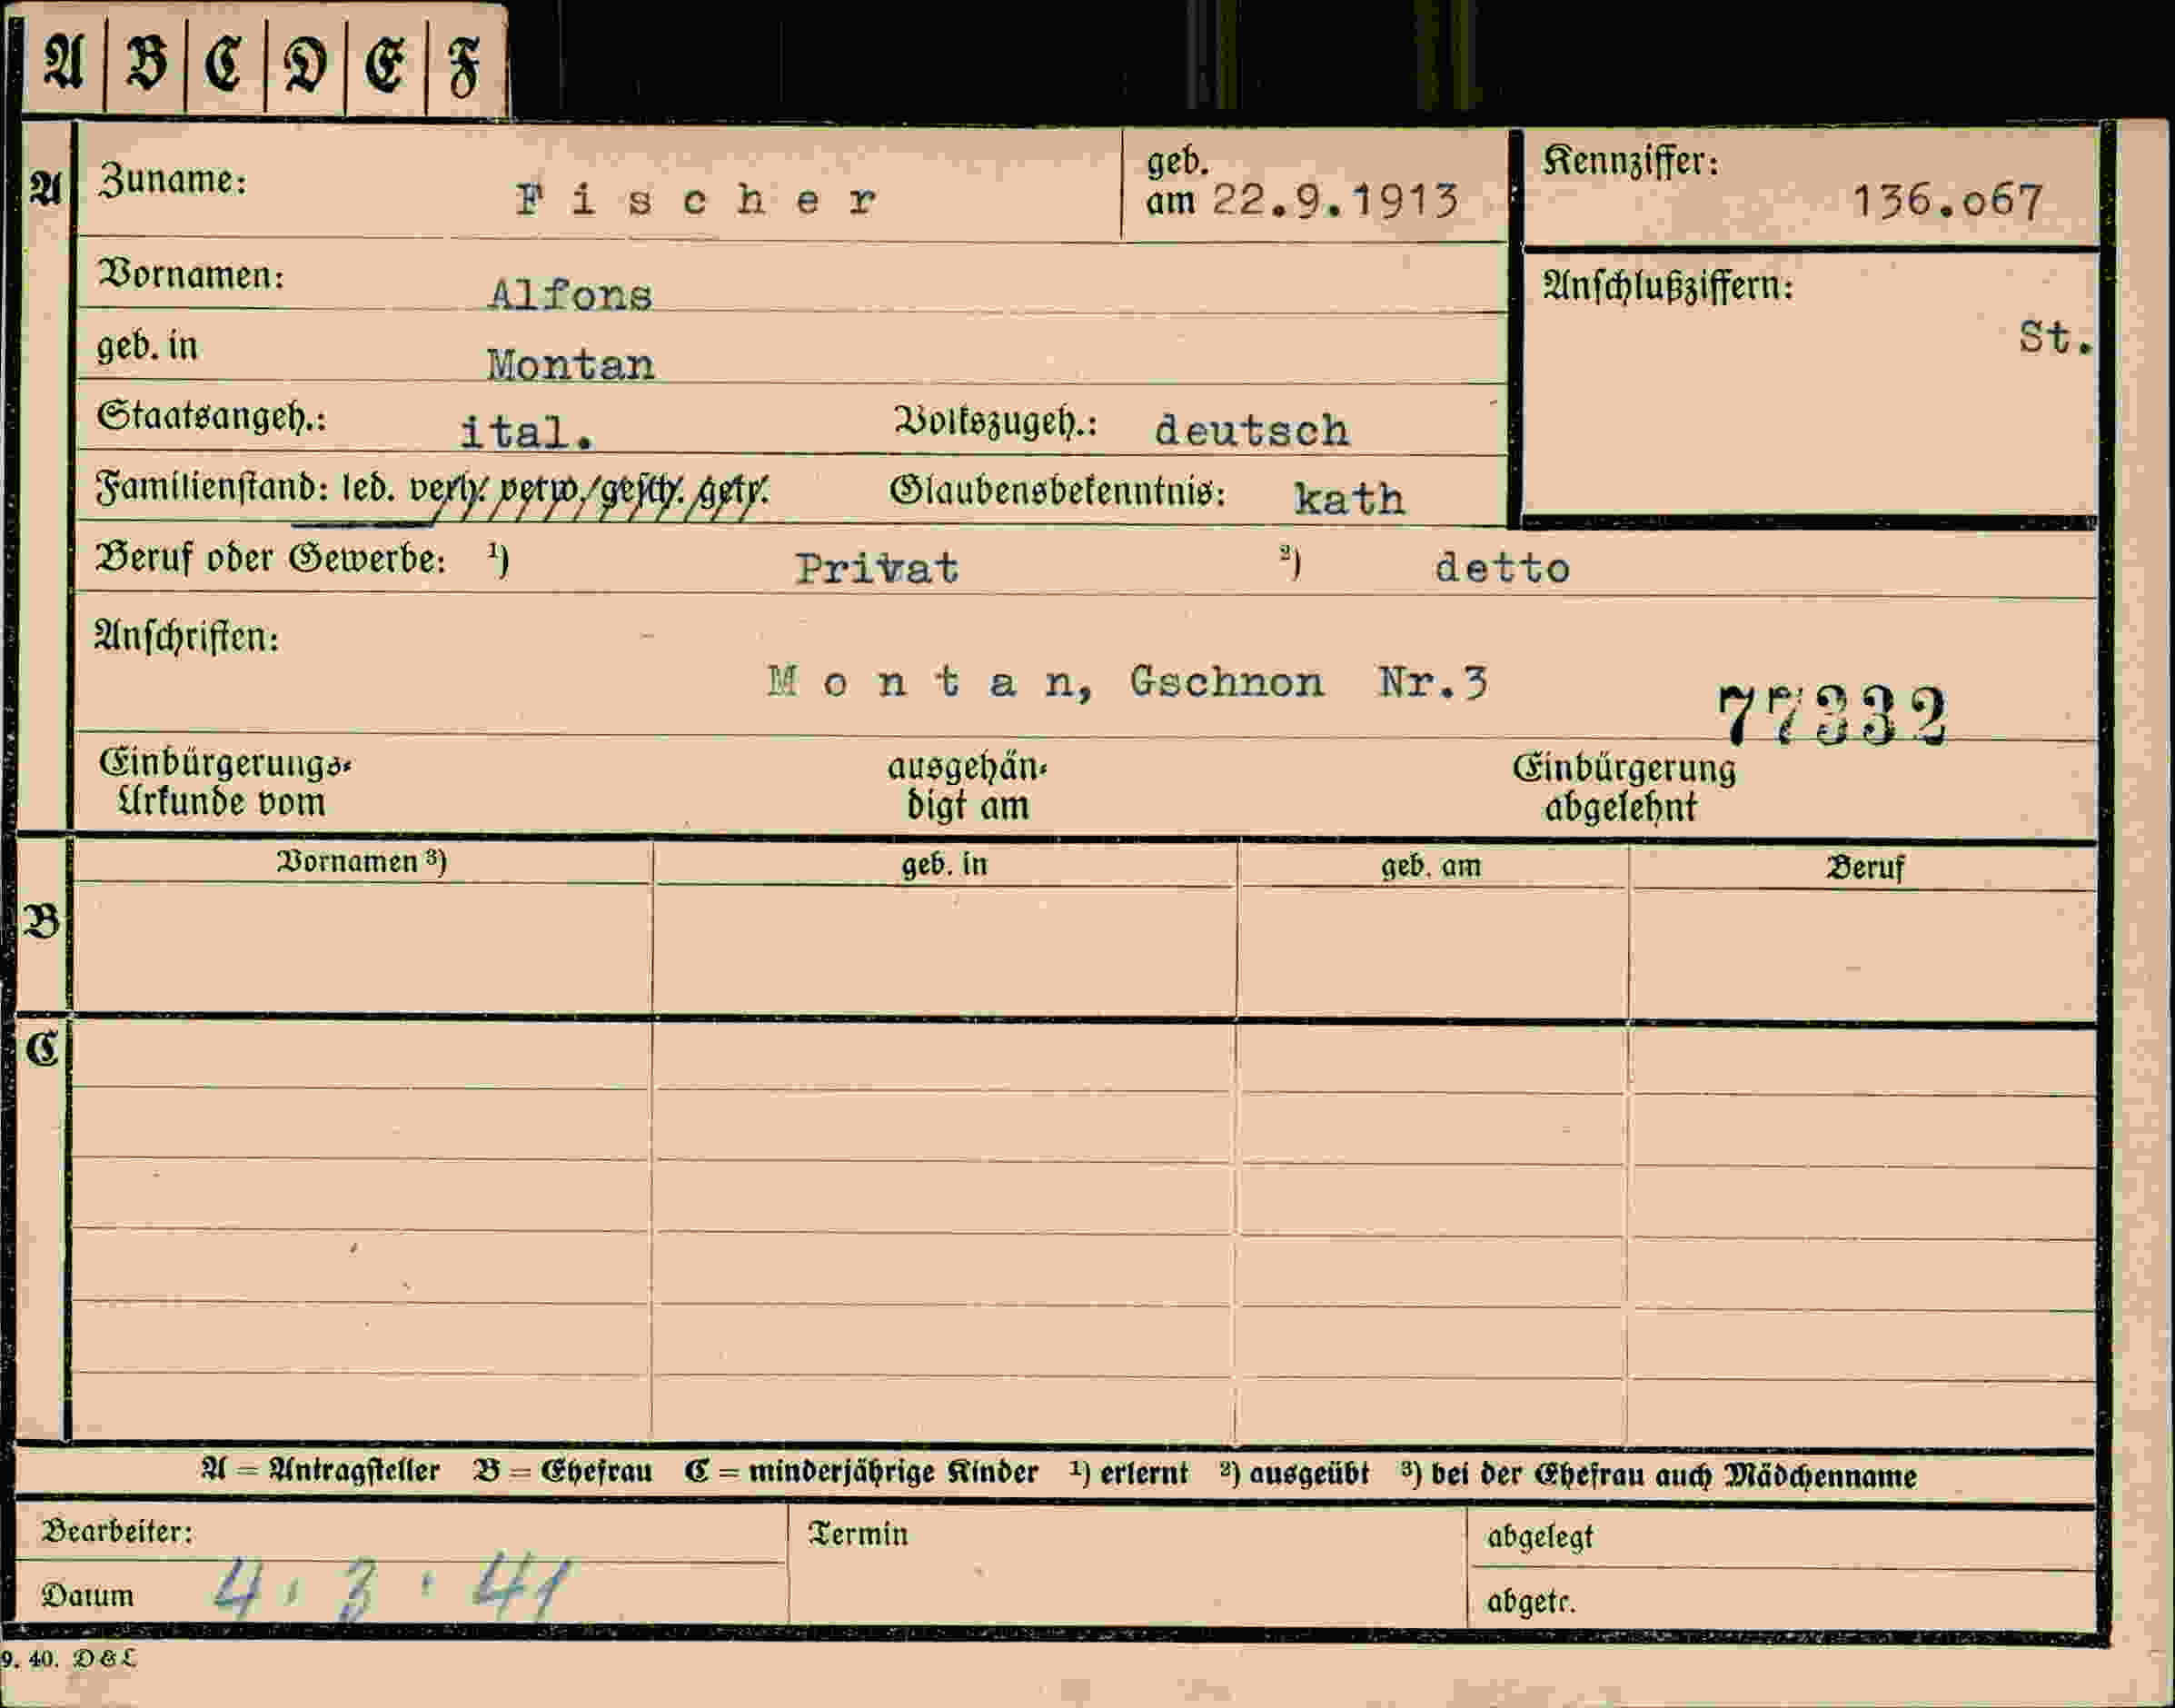 A B C D E F
A Zuname: Fischer geb. am 22.9.1913 Kennziffer: 136.o67
Vornamen: Alfons Anschlußziffern:
St.
geb. in Montan
Staatsangeh.: ital. Volkszugeh.: deutsch
Familienstand: led. verh. verw. gesch. getr. Glaubensbekenntnis: kath
Beruf oder Gewerbe: ¹) Privat ²) detto
Anschriften:
Montan, Gschnon Nr.3
77332
Einbürgerungs- ausgehän- Einbürgerung
Urkunde vom digt am abgelehnt
Vornamen ³) geb. in geb. am Beruf
B
C
A = Antragsteller B = Ehefrau C = minderjährige Kinder ¹) erlernt ²) ausgeübt ³) bei der Ehefrau auch Mädchenname
Bearbeiter: Termin abgelegt
Datum 4. 3. 41 abgetr.
9. 40. D & L